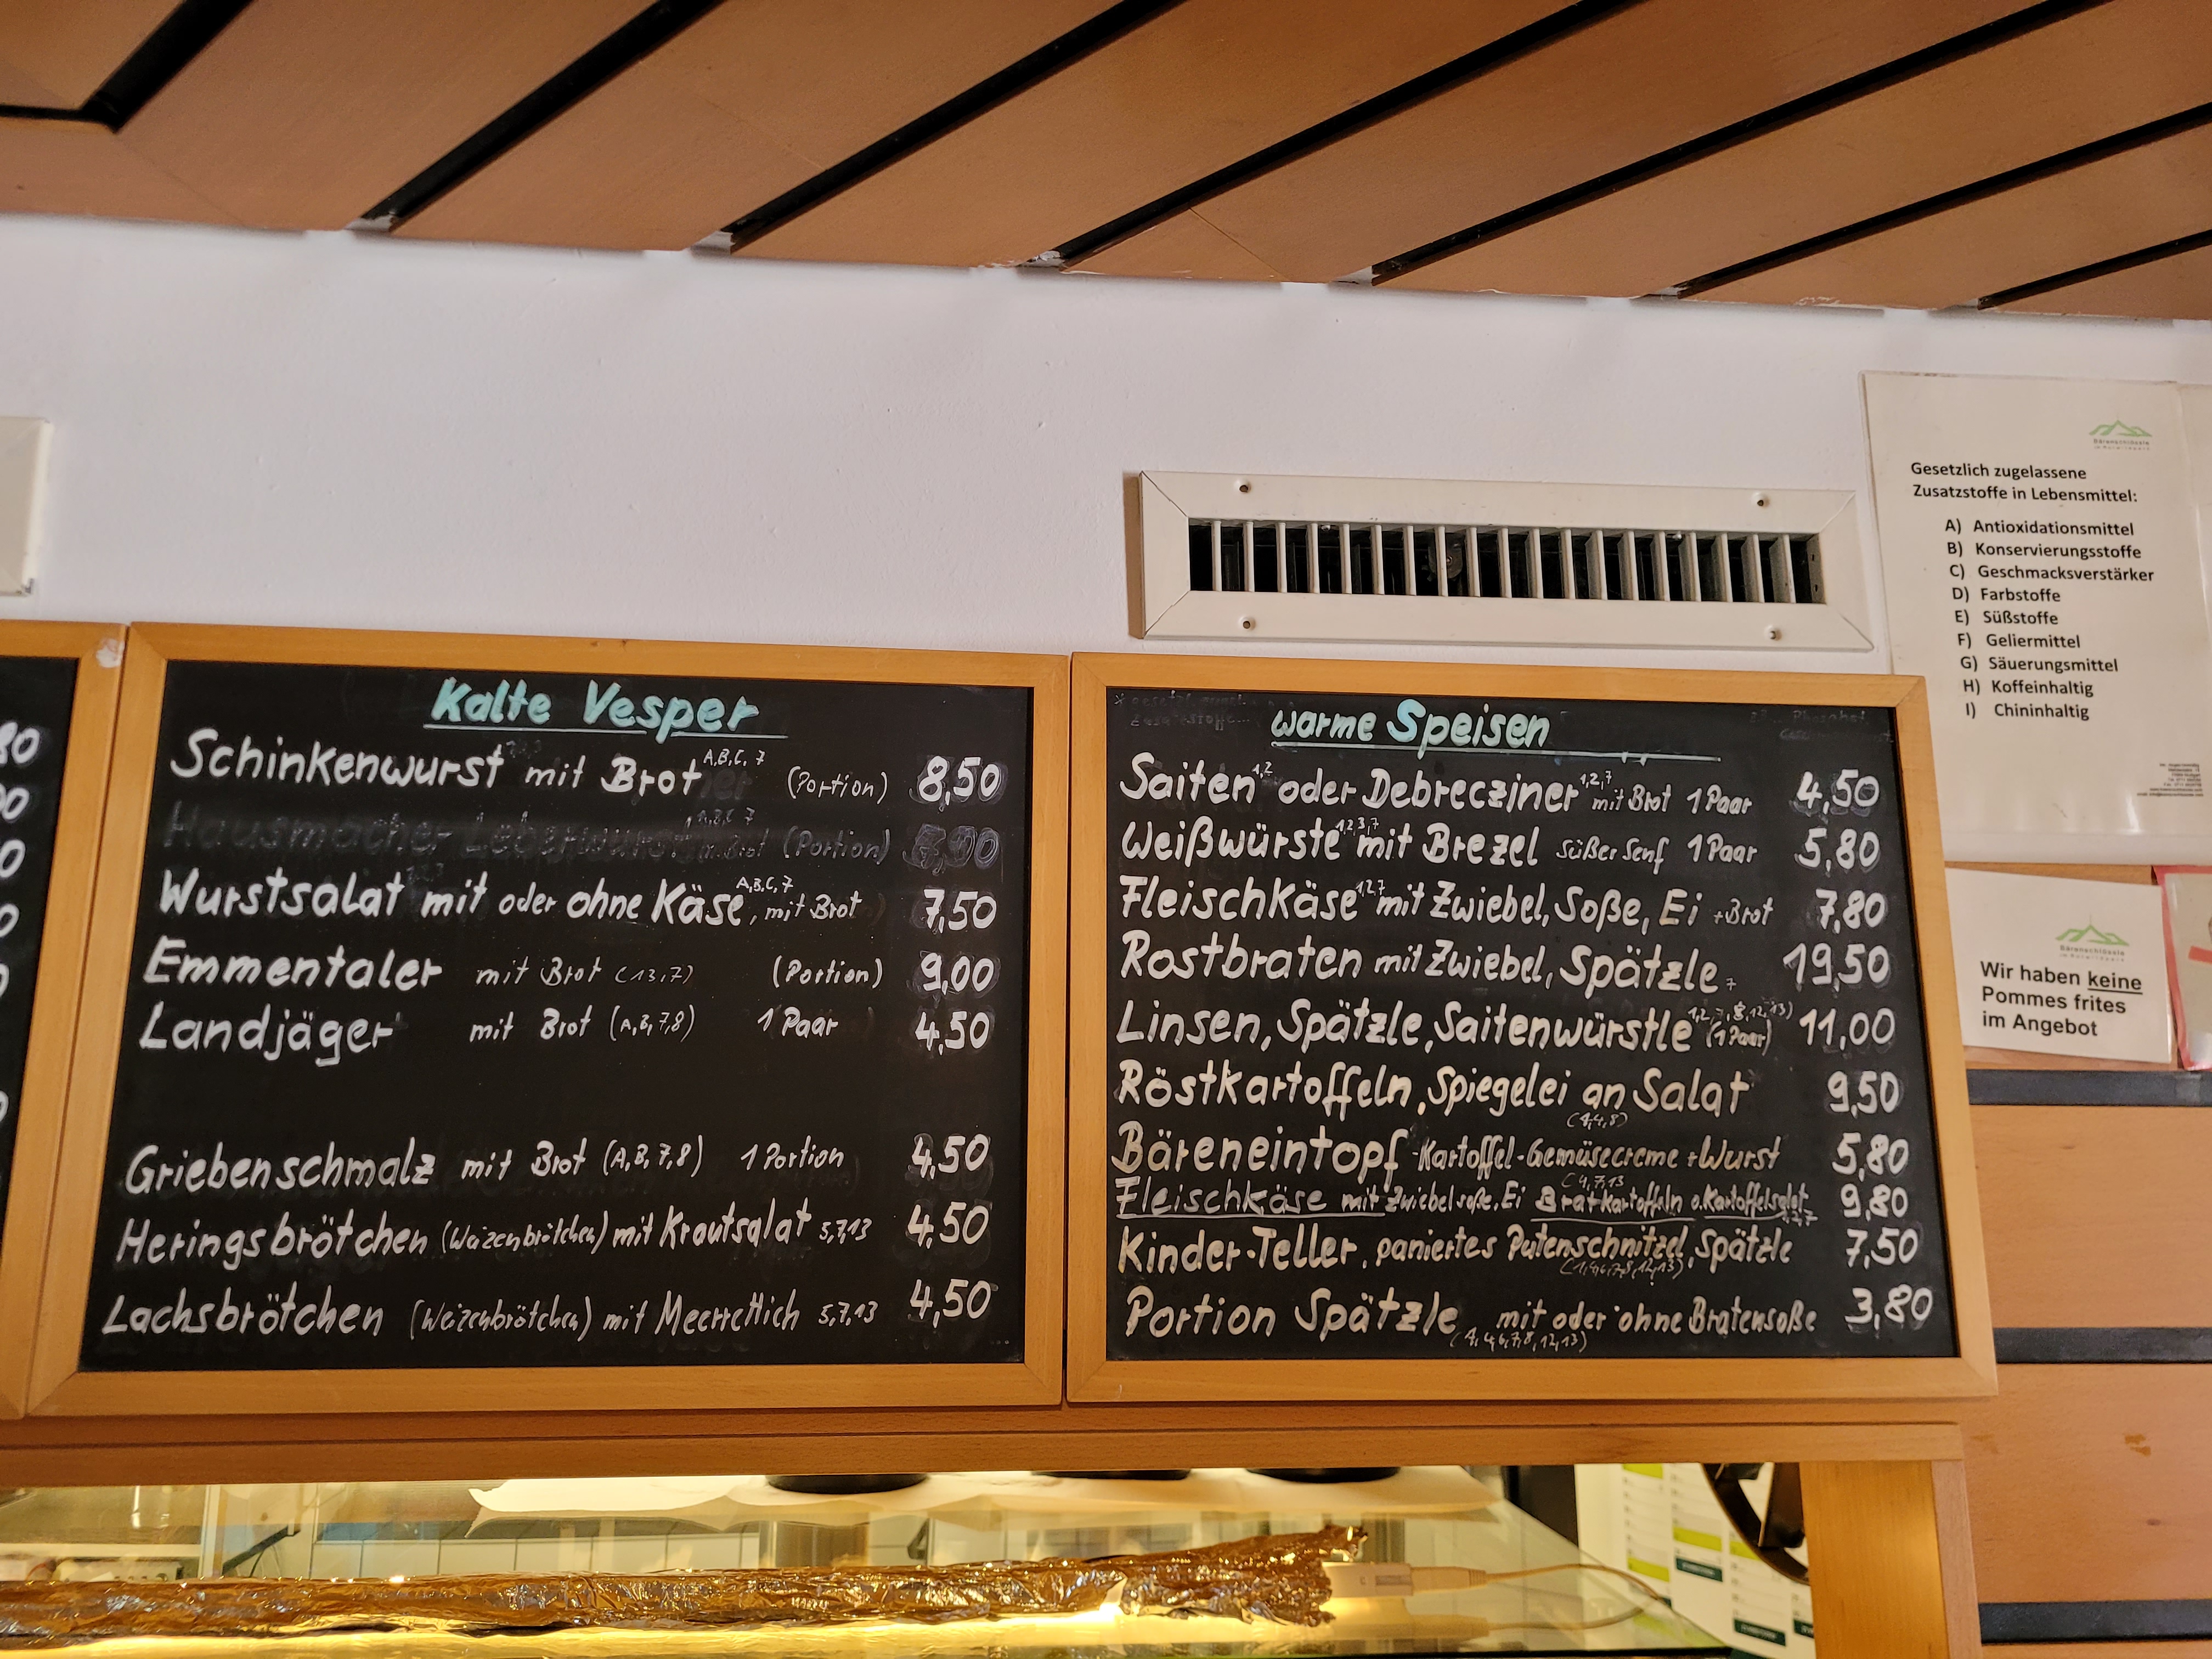 80
00
0
0
Kalte Vesper
Schinkenwurst mit Brot A,B,C, 7 (Portion) 8,50
Hausmacher Leberwurst m. Brot A,B,C 7 (Portion)
Wurstsalat mit oder ohne Käse, A,B,C,7 mit Brot 7,50
Emmentaler mit Brot (13,7) (Portion) 9,00
Landjäger mit Brot (A,B,7,8) 1 Paar 4,50
Griebenschmalz mit Brot (A,B,7,8) 1 Portion 4,50
Heringsbrötchen (Weizenbrötchen) mit Krautsalat 5,7,13 4,50
Lachsbrötchen (Weizenbrötchen) mit Meerrettich 5,7,13 4,50
warme Speisen
Saiten 1,2 oder Debrecziner 1,2,7 mit Brot 1 Paar 4,50
Weißwürste 1,2,3,7 mit Brezel süßer Senf 1 Paar 5,80
Fleischkäse 1,2,7 mit Zwiebel, Soße, Ei + Brot 7,80
Rostbraten mit Zwiebel, Spätzle 7 19,50
Linsen, Spätzle, Saitenwürstle (1 Paar) 11,00
Röstkartoffeln, Spiegelei an Salat 9,50
Bäreneintopf -Kartoffel-Gemüsecreme + Wurst 5,80
Fleischkäse mit Zwiebelsoße, Ei Bratkartoffeln o. Kartoffelsalat 9,80
Kinder-Teller, paniertes Putenschnitzel, Spätzle 7,50
Portion Spätzle mit oder ohne Bratensoße 3,80
Bärenschlössle
Gesetzlich zugelassene
Zusatzstoffe in Lebensmittel:
A) Antioxidationsmittel
B) Konservierungsstoffe
C) Geschmacksverstärker
D) Farbstoffe
E) Süßstoffe
F) Geliermittel
G) Säuerungsmittel
H) Koffeinhaltig
I) Chininhaltig
Bärenschlössle
Wir haben keine
Pommes frites
im Angebot